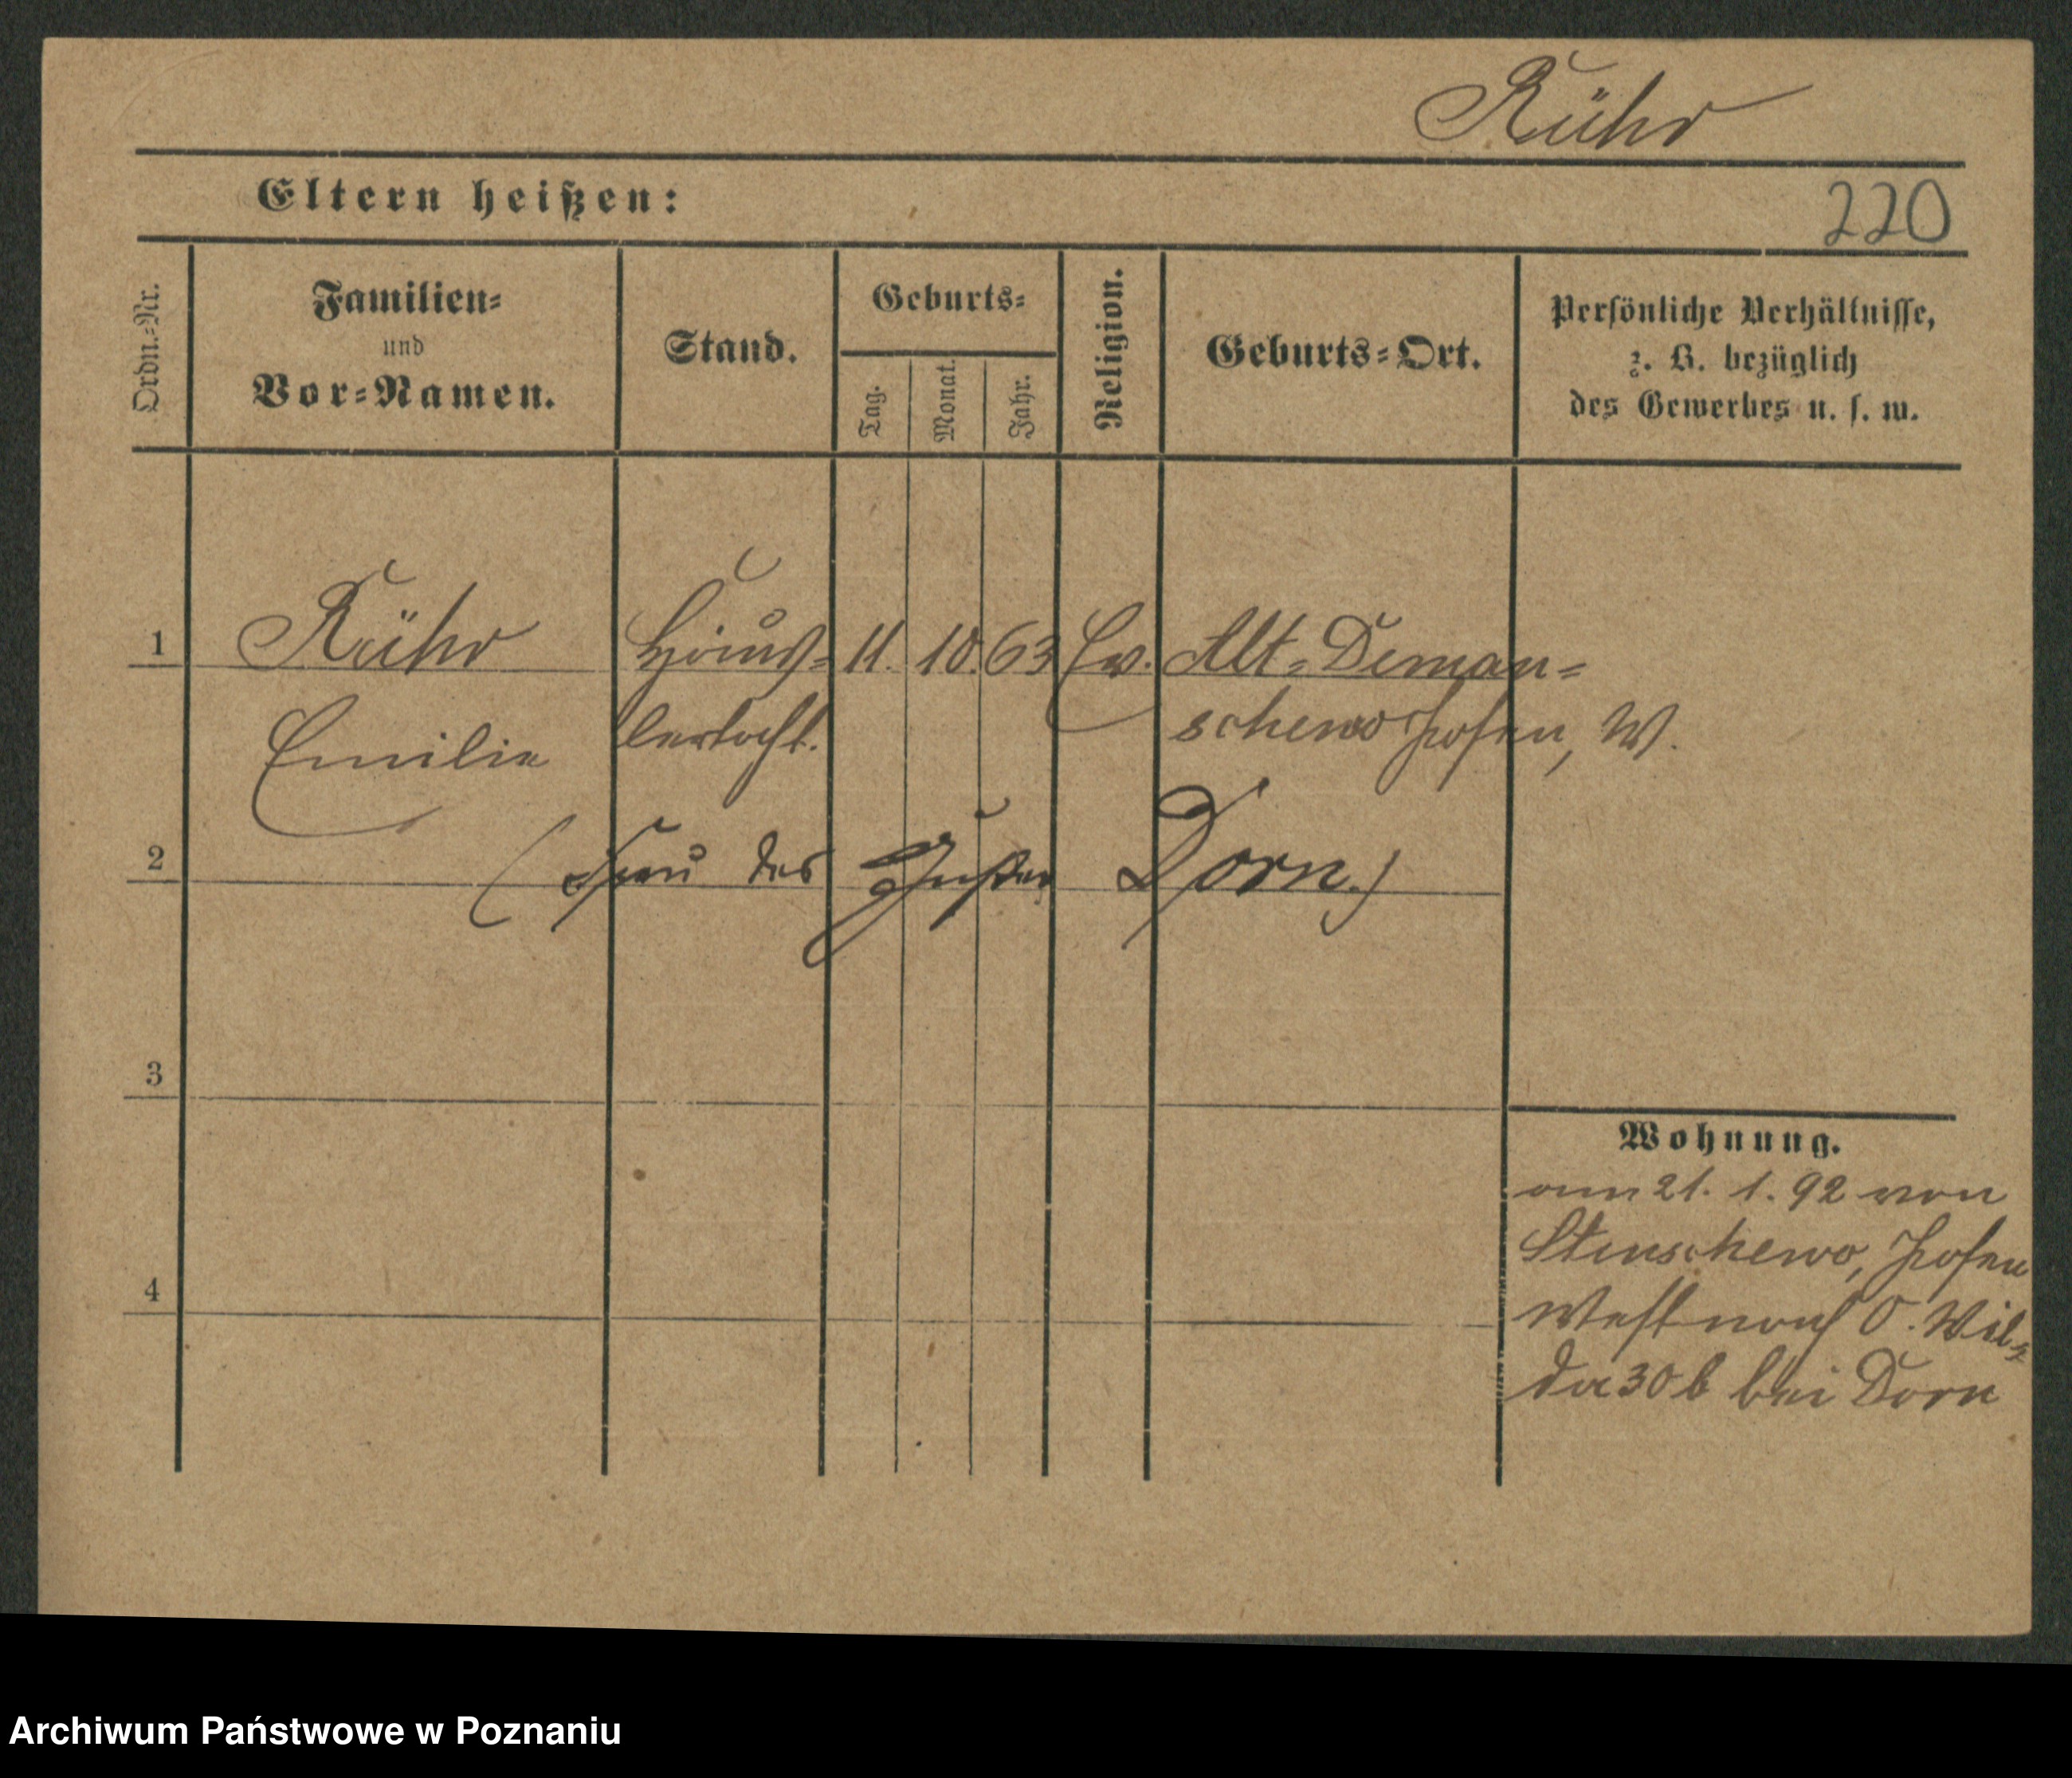 Rühr
Eltern heißen:
220
Ordn.-Nr.
Familien-
und
Vor-Namen.
Stand.
Geburts-
Tag.
Monat.
Jahr.
Religion.
Geburts-Ort.
Persönliche Verhältnisse,
z. B. bezüglich
des Gewerbes u. s. w.
1
Rühr
Häus-
11.
10.
63
Ev.
Alt-Deman-
Emilie
lertocht.
schewo Posen, W.
2
(Frau des Gustav Dorn.)
3
Wohnung.
am 21. 1. 92 von
Stenschewo, Posen
West nach O. Wil-
da 30 b bei Dorn
4
Archiwum Państwowe w Poznaniu